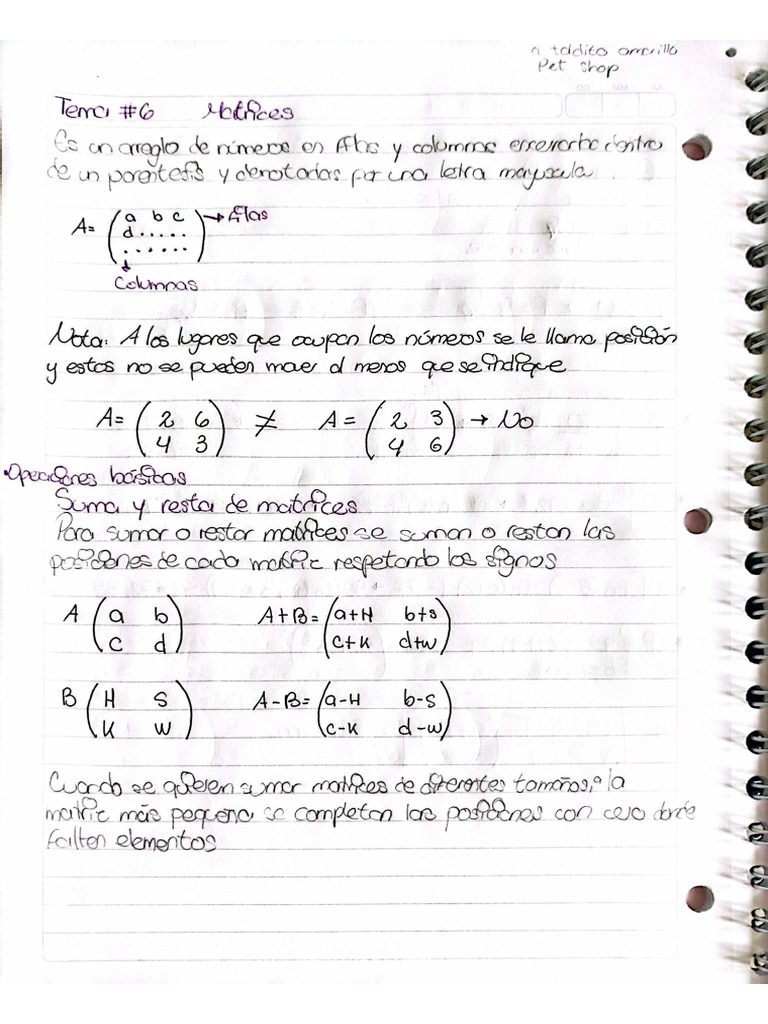 toldito amarillo
Pet Shop
DD MM AA
Tema #6 Matrices
Es un arreglo de números en filas y columnas dentro
de un parentesis y denotadas por una letra mayuscula
A= ( a b c ) → filas
d . . . . .
. . . . . .
Columnas
Nota: A los lugares que ocupan los números se le llama posición
y estos no se pueden mover al menos que se indique
A= ( 2 6 ) ≠ A = ( 2 3 ) → No
4 3 4 6
• Operaciones básicas
Suma y resta de matrices
Para sumar o restar matrices se suman o restan las
posiciones de cada matriz respetando los signos
A ( a b ) A+B= ( a+H b+s )
c d c+K d+w
B ( H S ) A-B= ( a-H b-S )
K W c-K d-w
Cuando se quieren sumar matrices de diferentes tamaños, a la
matriz más pequeña se completan las posiciones con cero donde
falten elementos